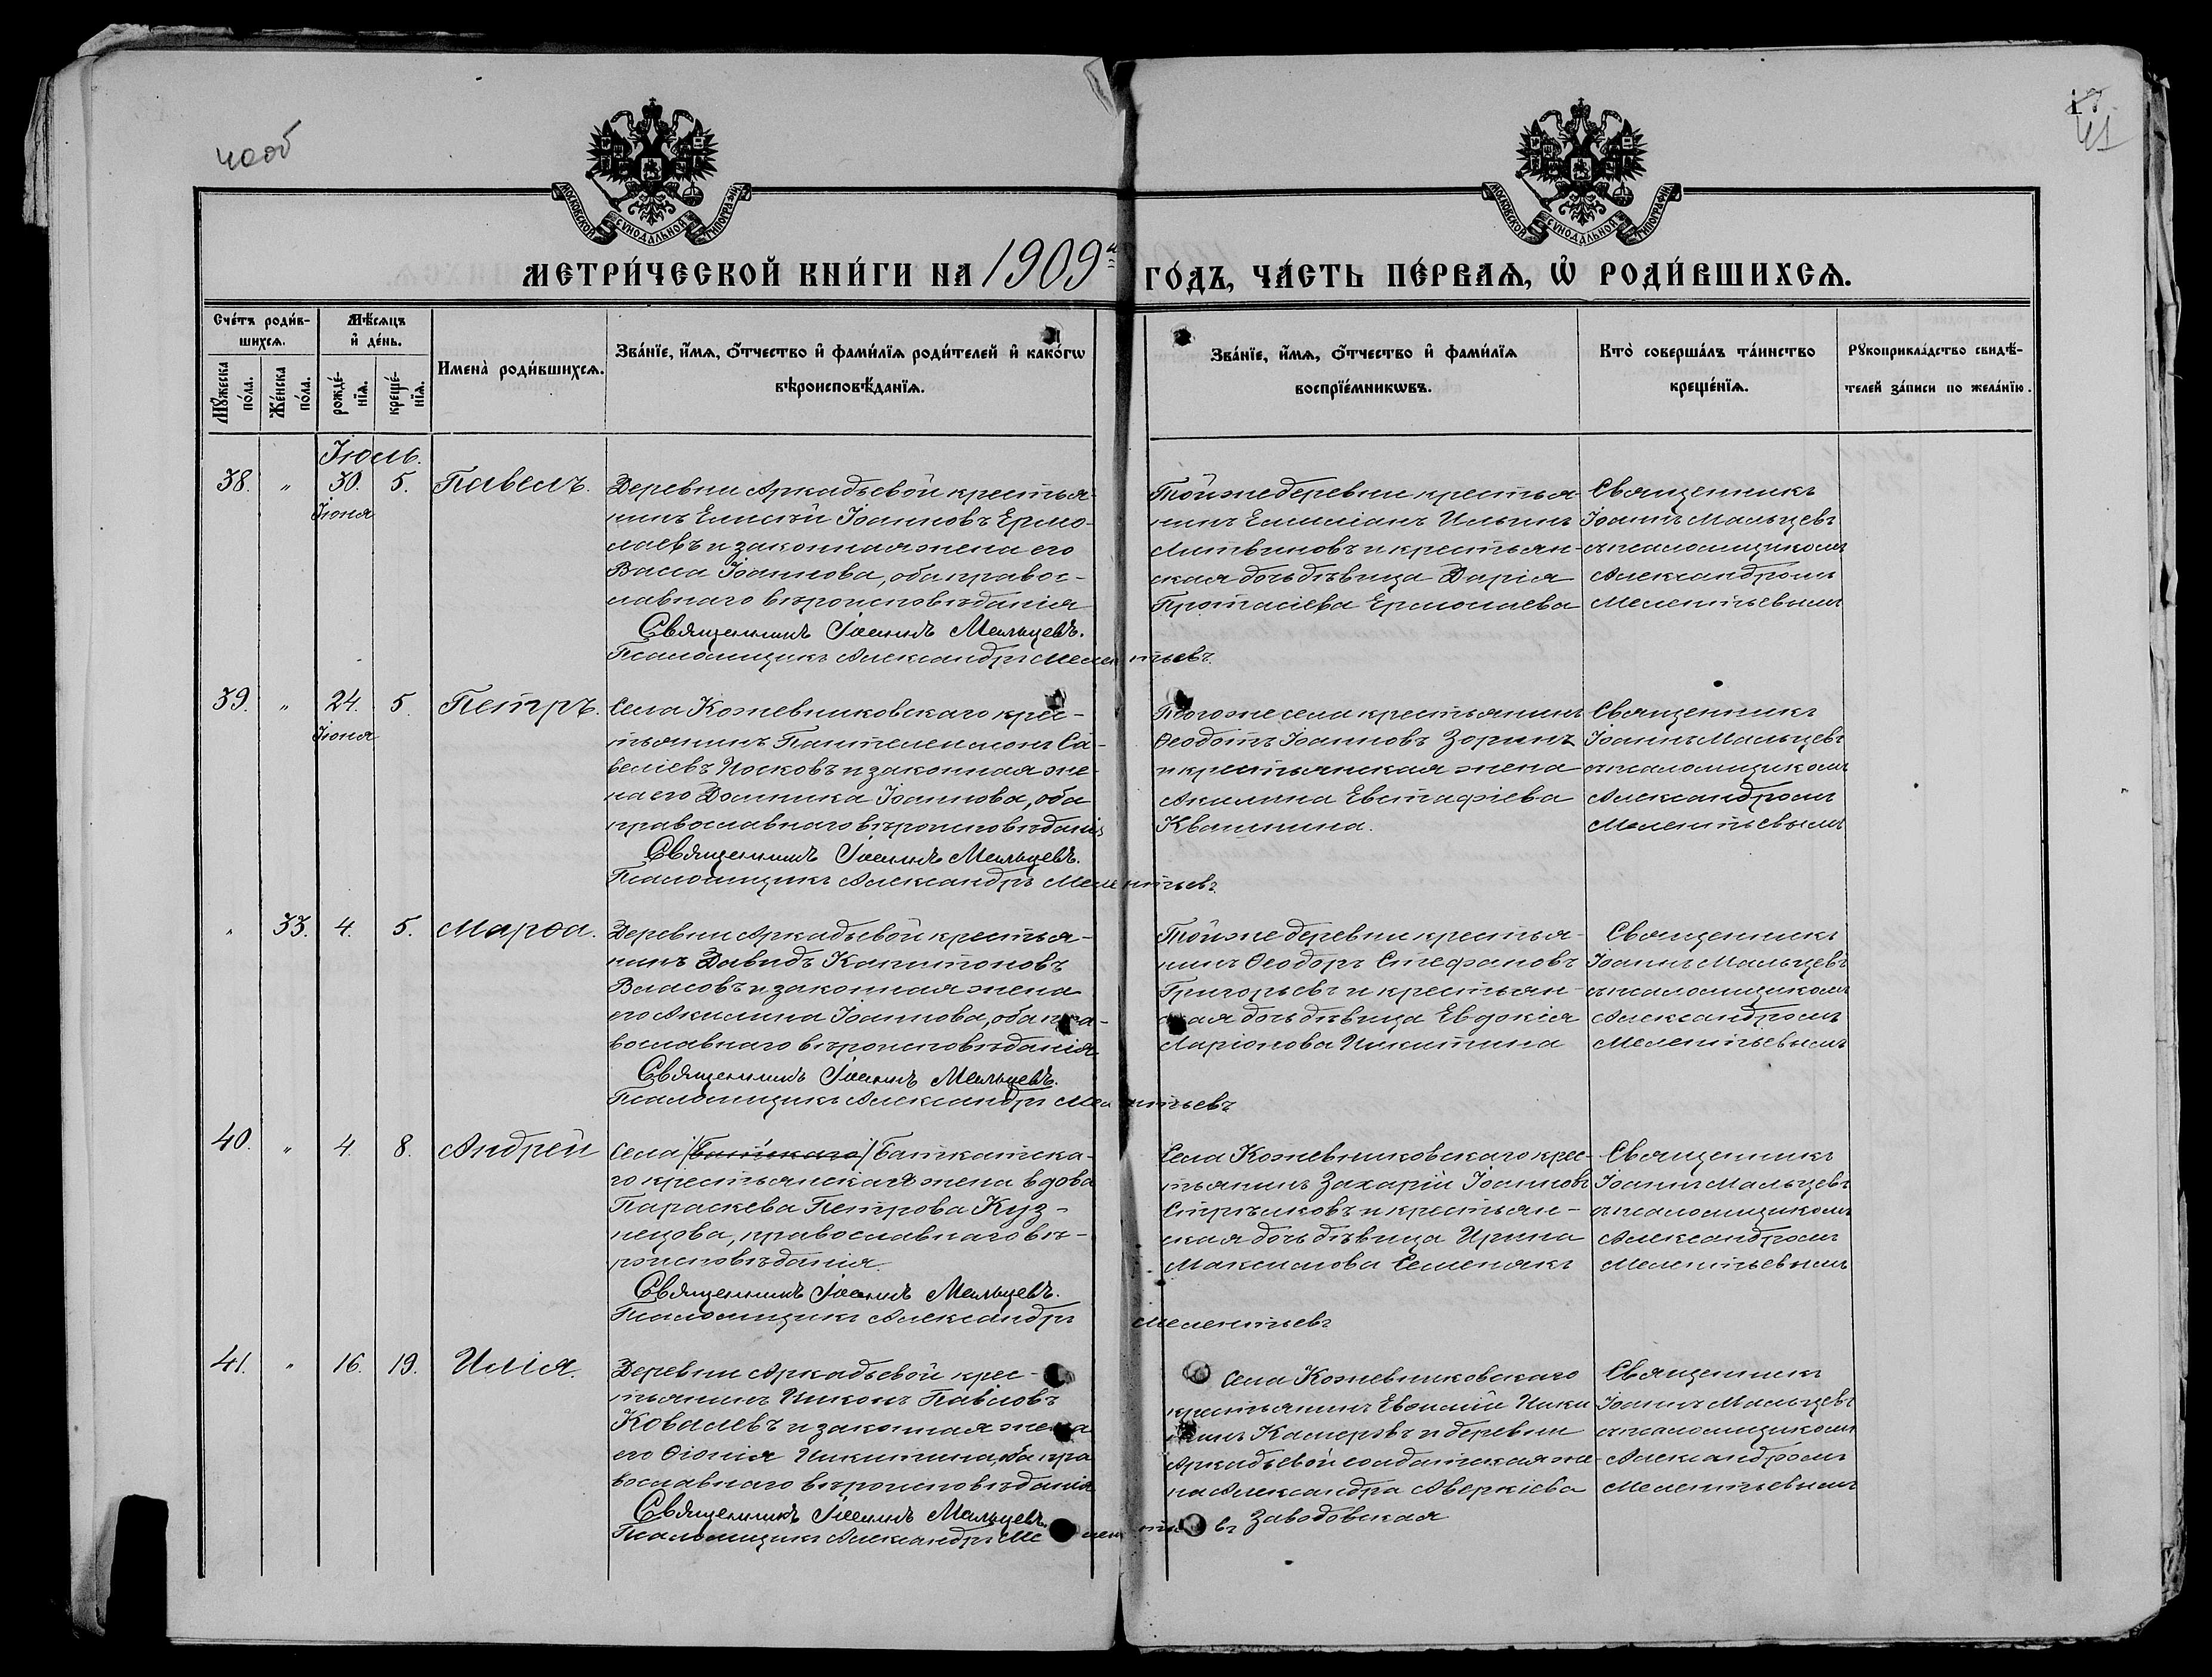 40об
17.
41
МОСКОВСКОЙ СУНОДАЛЬНОЙ ТИПОГРАФИИ
МОСКОВСКОЙ СУНОДАЛЬНОЙ ТИПОГРАФИИ
МЕТРИ́ЧЕСКОЙ КНИ́ГИ НА 1909й ГО́ДЪ, ЧА́СТЬ ПЕ́РВАѦ, Ѡ҆ РОДИ́ВШИХСѦ.
Сче́тъ роди́в-
шихсѧ.
Мꙋ́жеска
по́ла.
Же́нска
по́ла.
Мѣ́сѧцъ
и҆ де́нь.
рожде́-
нїѧ.
креще́-
нїѧ.
Имена̀ роди́вшихсѧ.
Зва́нїе, и҆́мѧ, ѻ҆́тчество и҆ фами́лїѧ роди́телей и҆ како́гѡ
вѣроисповѣ́данїѧ.
Зва́нїе, и҆́мѧ, ѻ҆́тчество и҆ фами́лїѧ
воспрїе́мникѡвъ.
Кто̀ соверша́лъ та́инство
креще́нїѧ.
Рꙋкоприкла́дство свидѣ́-
телей за́писи по жела́нїю.
Іюль.
38. " 30. 5. Павелъ.
Іюня
Деревни Аркадьевой крестья-
нинъ Елисѣй Іоанновъ Ермо-
лаевъ и законная жена его
Васса Іоаннова, оба правос-
лавнаго вѣроисповѣданія
Священникъ Іоаннъ Мальцевъ.
Псаломщикъ Александръ Мелентьевъ.
Той же деревни крестья-
нинъ Емиліанъ Ильинъ
Литвиновъ и крестьян-
ская дочь дѣвица Дарія
Протасіева Ермолаева
Священникъ
Іоаннъ Мальцевъ
съ псаломщикомъ
Александромъ
Мелентьевымъ
39. " 24. 5. Петръ.
Іюня
Села Кожевниковскаго крес-
тьянинъ Пантелеимонъ Са-
веліевъ Носковъ и законная же-
на его Домника Іоаннова, оба
православнаго вѣроисповѣданія
Священникъ Іоаннъ Мальцевъ.
Псаломщикъ Александръ Мелентьевъ.
Того же села крестьянинъ
Ѳеодотъ Іоанновъ Зоринъ
и крестьянская жена
Акилина Евстафіева
Квашнина.
Священникъ
Іоаннъ Мальцевъ
съ псаломщикомъ
Александромъ
Мелентьевымъ
" 33. 4. 5. Марѳа.
Деревни Аркадьевой крестья-
нинъ Давидъ Капитоновъ
Власовъ и законная жена
его Акилина Іоаннова, оба пра-
вославнаго вѣроисповѣданія
Священникъ Іоаннъ Мальцевъ.
Псаломщикъ Александръ Мелентьевъ
Той же деревни крестья-
нинъ Ѳеодоръ Стефановъ
Григорьевъ и крестьян-
ская дочь дѣвица Евдокія
Ларіонова Никитина
Священникъ
Іоаннъ Мальцевъ
съ псаломщикомъ
Александромъ
Мелентьевымъ
40. " 4. 8. Андрей
Села /Батскаго/ Баткатска-
го крестьянская жена вдова
Параскева Петрова Куз-
нецова, православнаго вѣ-
роисповѣданія.
Священникъ Іоаннъ Мальцевъ.
Псаломщикъ Александръ Мелентьевъ
Села Кожевниковскаго крес-
тьянинъ Захарій Іоанновъ
Стрѣлковъ и крестьян-
ская дочь дѣвица Ирина
Максимова Семенякъ
Священникъ
Іоаннъ Мальцевъ
съ псаломщикомъ
Александромъ
Мелентьевымъ
41. " 16. 19. Илія.
Деревни Аркадьевой крес-
тьянинъ Никонъ Павловъ
Ковалевъ и законная жена
его Ѳіонія Никитина, оба пра
вославнаго вѣроисповѣданія
Священникъ Іоаннъ Мальцевъ.
Псаломщикъ Александръ Мелентьевъ
Села Кожевниковскаго
крестьянинъ Евѳимій Ники
тинъ и деревни
Аркадьевой солдатская же-
на Александра Аверкіева
Заводовская
Священникъ
Іоаннъ Мальцевъ
съ псаломщикомъ
Александромъ
Мелентьевымъ